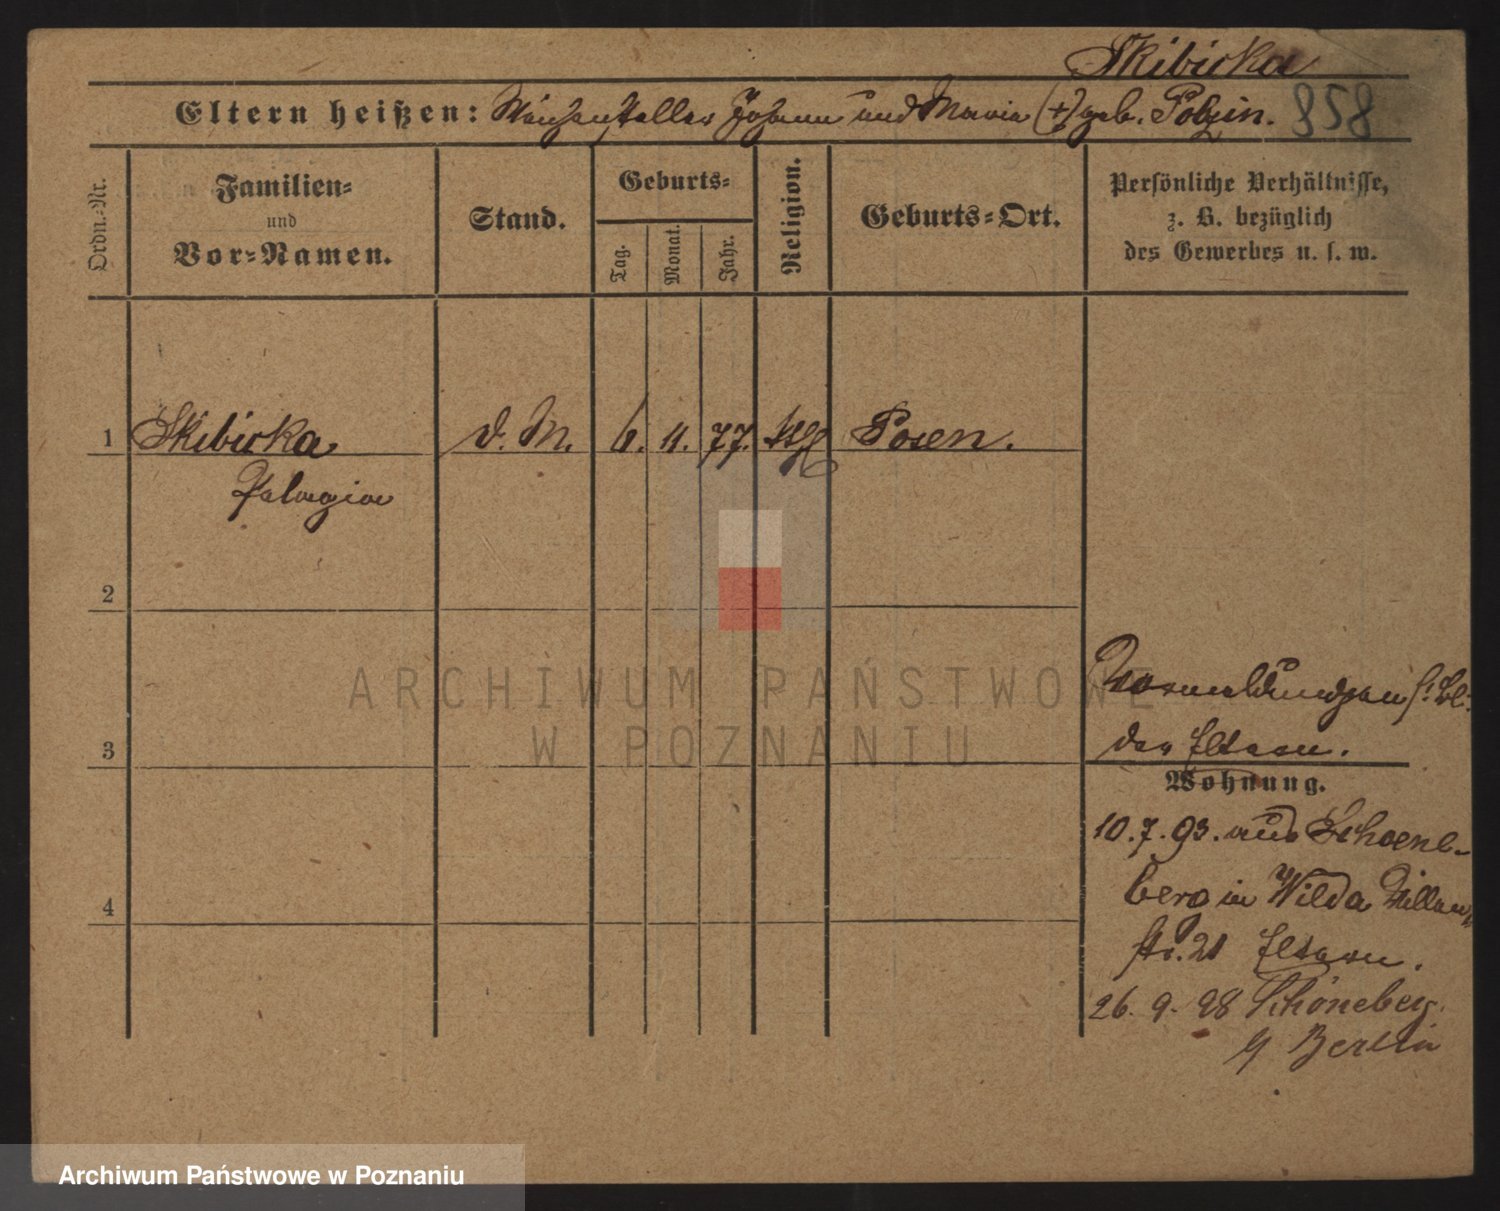 Skibicka
Eltern heißen: Weichensteller Johann und Maria (+) geb. Polzin. 858
Ordn.-Nr.
Familien-
und
Vor-Namen.
Stand.
Geburts-
Tag.
Monat.
Jahr.
Religion.
Geburts-Ort.
Persönliche Verhältnisse,
z. B. bezüglich
des Gewerbes u. s. w.
1 Skibicka d. M. 6. 11. 77. kth Posen.
Pelagia
2
ARCHIWUM PAŃSTWOWE
W POZNANIU
Vormeldungen s. Bl.
der Eltern.
3
Wohnung.
10. 7. 93. aus Schoene-
berg in Wilda
4
str. 21 Eltern.
26. 9. 98 Schöneberg
b/ Berlin
Archiwum Państwowe w Poznaniu